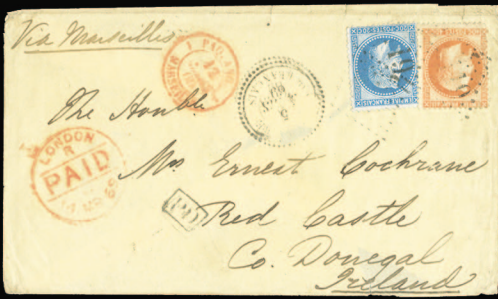 Via Marseilles
The Honble
Mrs Ernest Cochrane
Red Castle
Co. Donegal
Ireland
LONDON
R
PAID
PD
EMPIRE FRANÇAIS